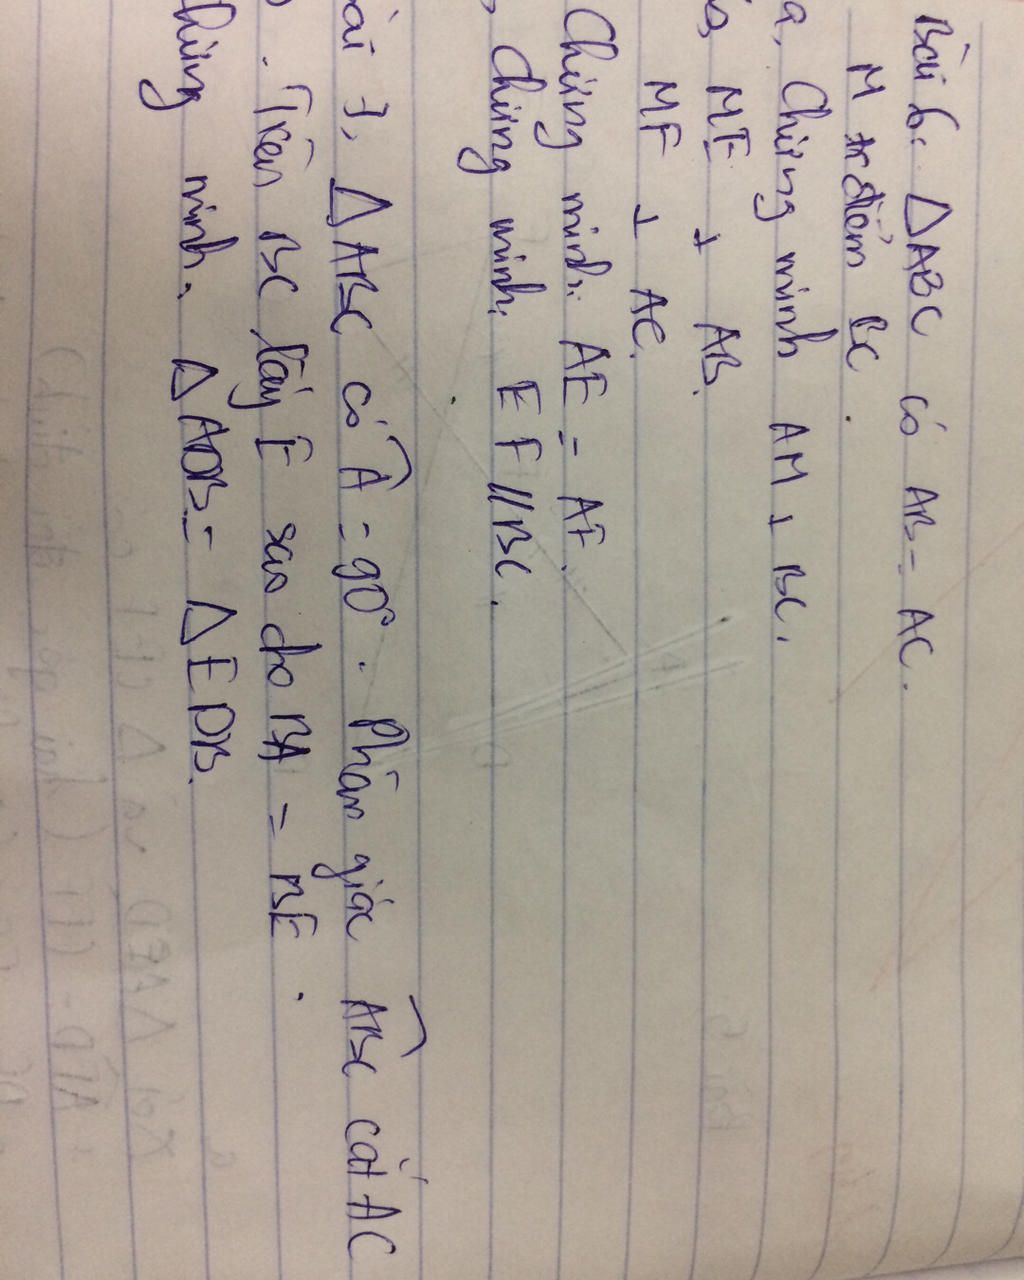 Bài 6: ΔABC có AB = AC.
M tr điểm BC.
a, Chứng minh AM ⊥ BC.
b, ME ⊥ AB.
MF ⊥ AC.
Chứng minh: AE = AF.
, Chứng minh: EF // BC.
ài 7, ΔABC có Â = 90°. Phân giác ABC cắt AC
. Trên BC lấy E sao cho BA = BE.
hứng minh: ΔADB = ΔEDB.